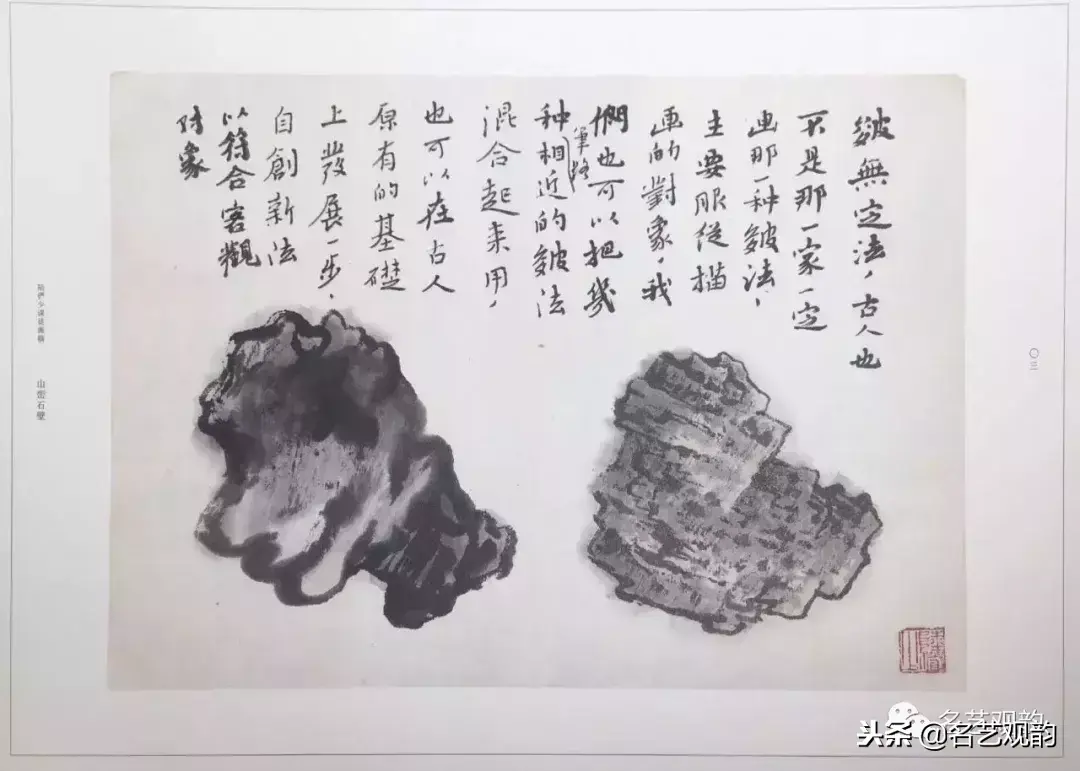 皴無定法，古人也
不是那一家一定
画那一种皴法，
主要服從描
画的對象，我
們也可以把幾
种筆路相近的皴法
混合起来用，
也可以在古人
原有的基礎
上發展一步，
自創新法
以符合客觀
对象
陆俨少课徒画稿
山峦石壁
〇三
名艺观韵
头条@名艺观韵